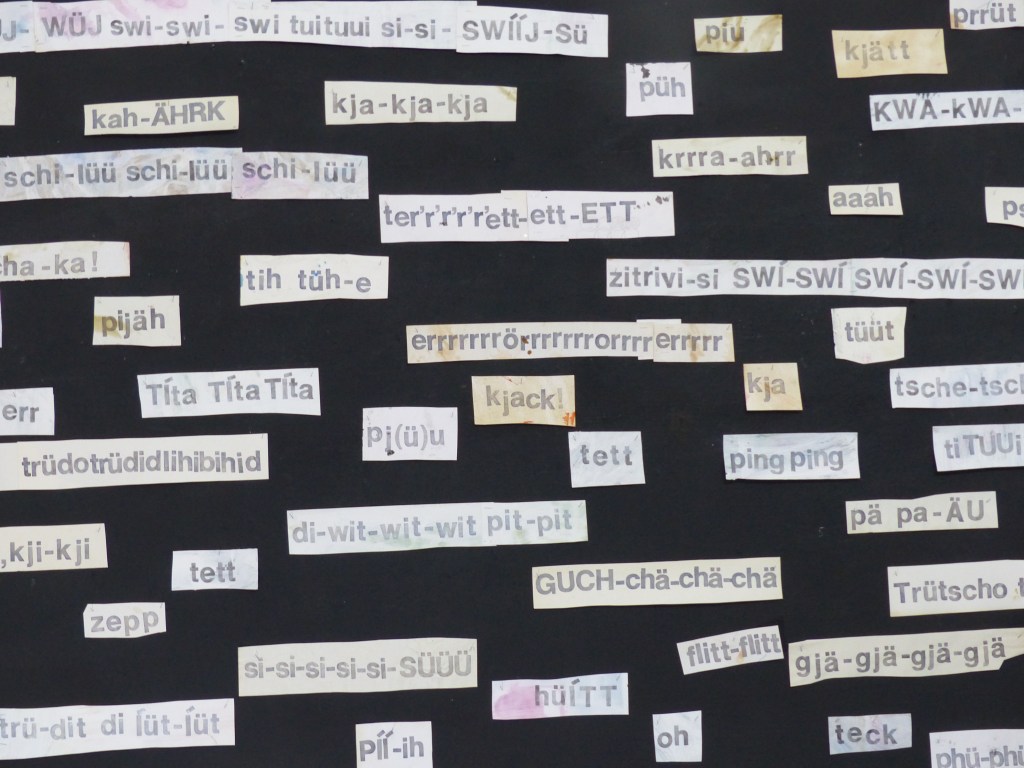 WÜJ swi-swi- swi tuituui si-si- SWÍÍJ-SÜ
prrüt
piu
kjätt
püh
kja-kja-kja
kah-ÄHRK
KWÄ-kWA-
krrra-ahrr
schi-lüü schi-lüü schi-lüü
aaah
ter'r'r'r'r'ett-ett-ETT
ha-ka!
tih tüh-e
zitrivi-si SWÍ-SWÍ SWÍ-SWÍ-SWÍ
pijäh
tüüt
errrrrrrörrrrrrrorrrr errrrr
TÍta TÍta TÍta
kjack!
kja
tsche-tsch
err
pj(ü)u
tiTUUi
tett
ping ping
trüdotrüdidlihibihid
pä pa-ÄU
di-wit-wit-wit pit-pit
,kji-kji
tett
GUCH-chä-chä-chä
Trütscho
zepp
flitt-flitt
gjä-gjä-gjä-gjä
si-si-si-si-si-SÜÜÜ
hüÍTT
trü-dit di Íüt-Íüt
oh
teck
pÍÍ-ih
phü-phü